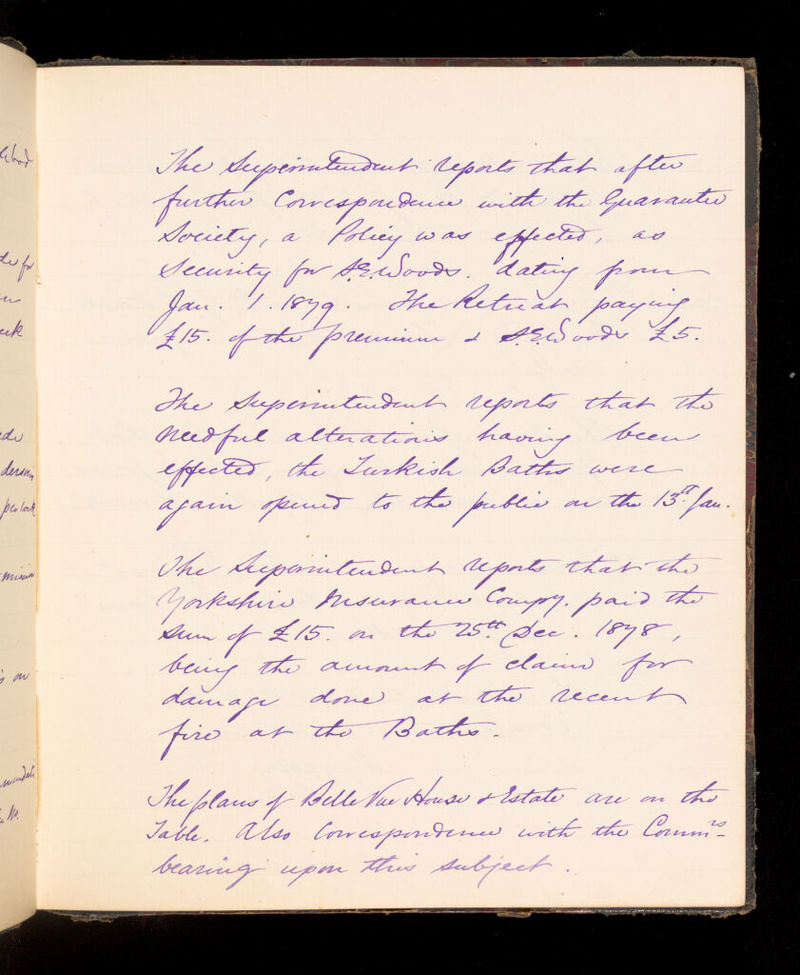 The Superintendent reports that after
further Correspondence with the Guarantee
Society, a Policy was effected, as
Security for S.E.Woods. dating from
Jan. 1. 1879. The Retreat paying
£15. of the premium & S.E.Woods £5.
The Superintendent reports that the
needful alterations having been
effected, the Turkish Baths were
again opened to the public on the 13th Jan.
The Superintendent reports that the
Yorkshire Insurance Compy. paid the
sum of £15. on the 25th Dec. 1878,
being the amount of claim for
damage done at the recent
fire at the Baths.
The plans of Belle Vue House & Estate are on the
Table. Also Correspondence with the Commrs
bearing upon this subject.